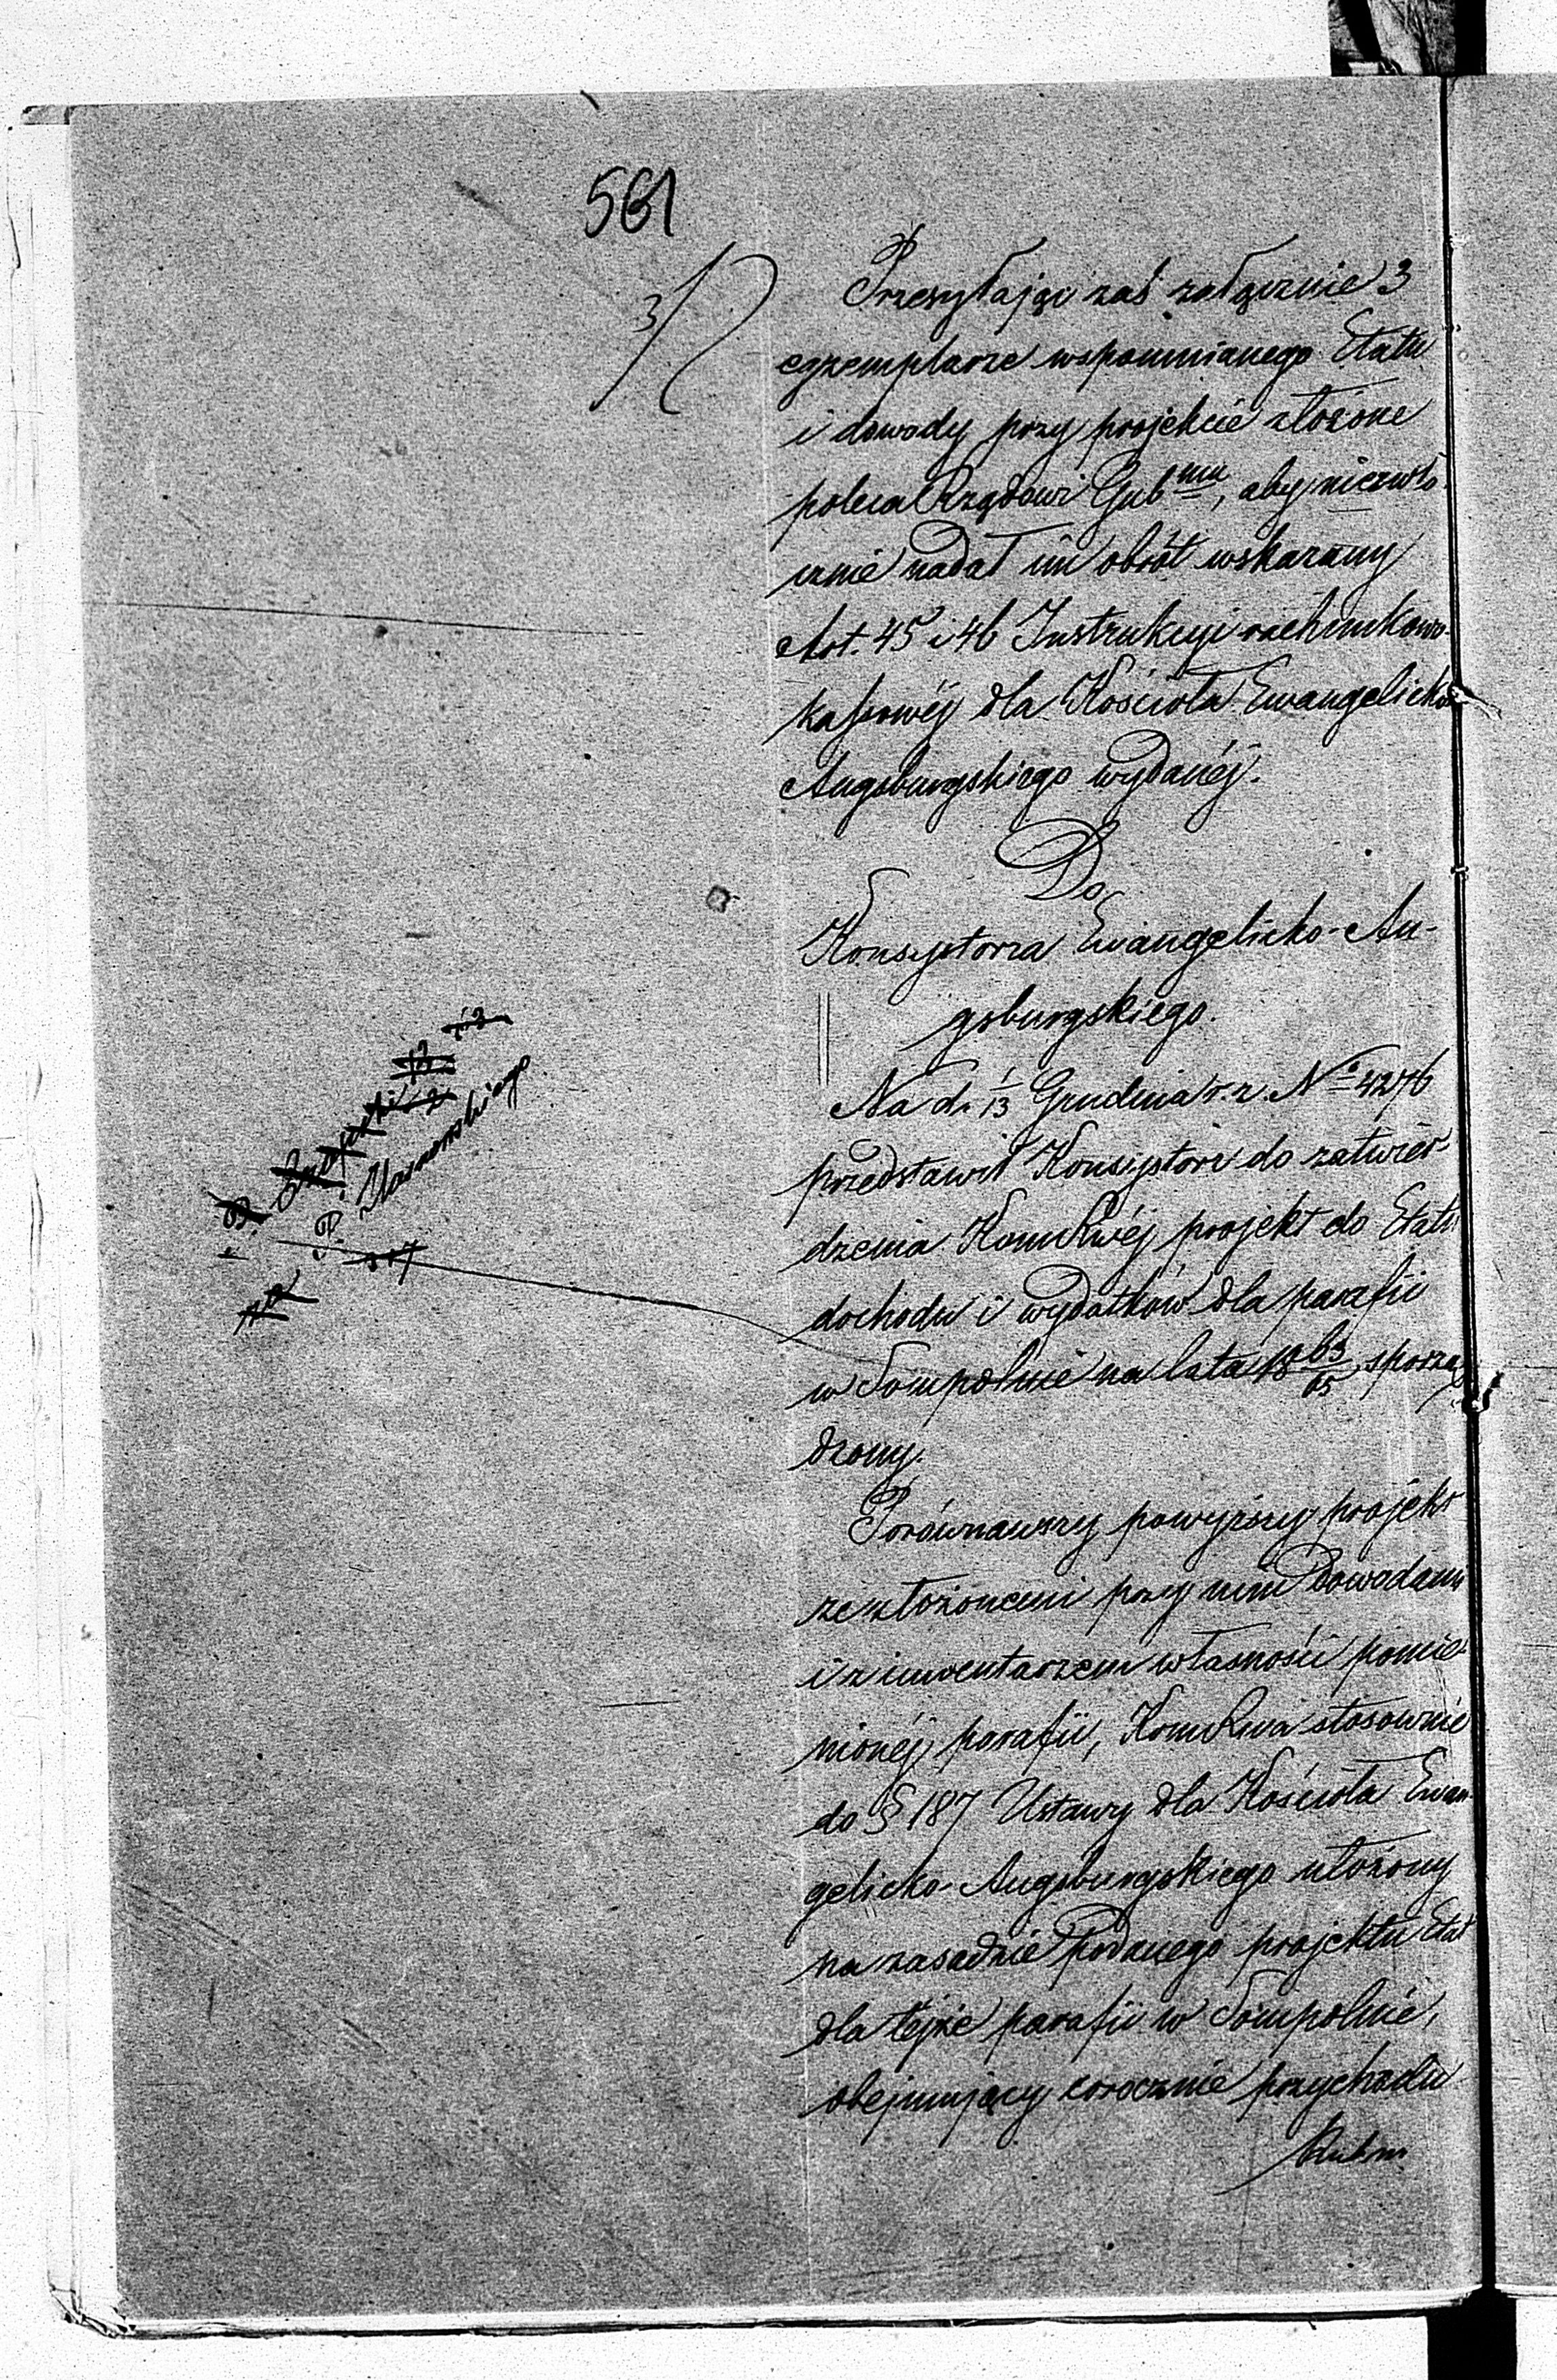 561
3/
Przesyłając zaś załącznie 3
egzemplarze wspomnianego Etatu
i dowody przy projekcie złożone
poleca Rządowi Gubmu, aby niezwło-
cznie nadał im obrót wskazany
Art. 45 i 46 Instrukcyi rachunkowo-
kassowéj dla Kościoła Ewangelicko
Augsburgskiego wydanéj.
Do
Konsystorza Ewangelicko-Au-
gsburgskiego.
Na d. 1/13 Grudnia r. z. No 4276
przedstawił Konsystorz do zatwier-
dzenia KomRwéj projekt do Etatu
dochodu i wydatków dla parafii
w Sompolnie na lata 1863/65 sporzą
dzony.
Porównawszy powyższy projekt
ze złożonemi przy nim dowodami
i z inwentarzem własności pomie-
nionéj parafii, KomRwa stosownie
do § 187 Ustawy dla Kościoła Ewan-
gelicko-Augsburgskiego ułożony
na zasadzie podanego projektu Etat
dla tejże parafii w Sompolnie,
obejmujący corocznie przychodu
Rubsr.
P.